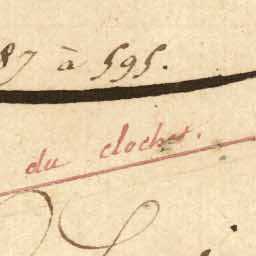 87 à 595.
du clocher.